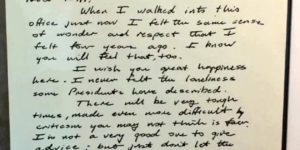 When I walked into this
office just now I felt the same sense
of wonder and respect that I
felt four years ago. I know
you will feel that, too.
I wish you great happiness
here. I never felt the loneliness
some Presidents have described.
There will be very tough
times, made even more difficult by
criticism you may not think is fair.
I'm not a very good one to give
advice; but just don't let the